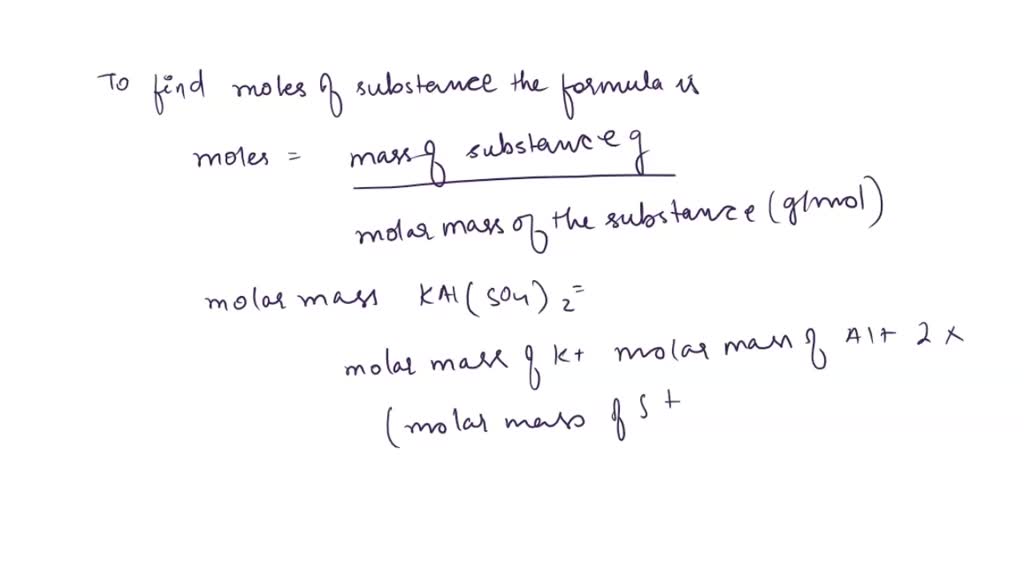 To find moles of substance the formula is
moles = mass of substance g
molar mass of the substance (g/mol)
molar mass KAl(SO4)2=
molar mass of K+ molar mass of Al+ 2 x
(molar mass of S +